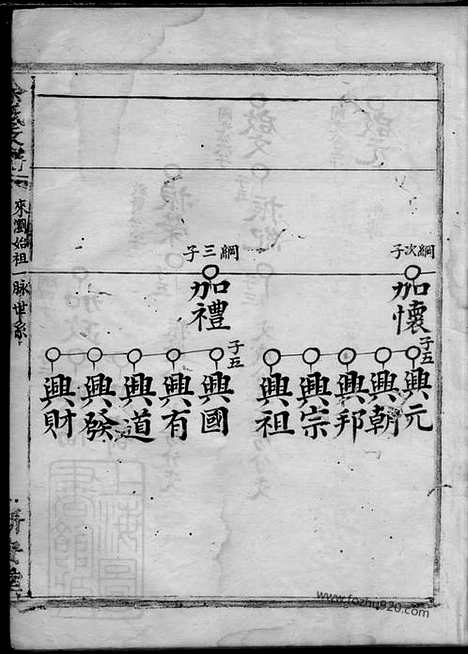 綱次子
加懷
子五
興元
興朝
興邦
興宗
興祖
綱三子
加禮
子五
興國
興有
興道
興發
興財
來閩始祖一脉世系
www.fozhu920.com